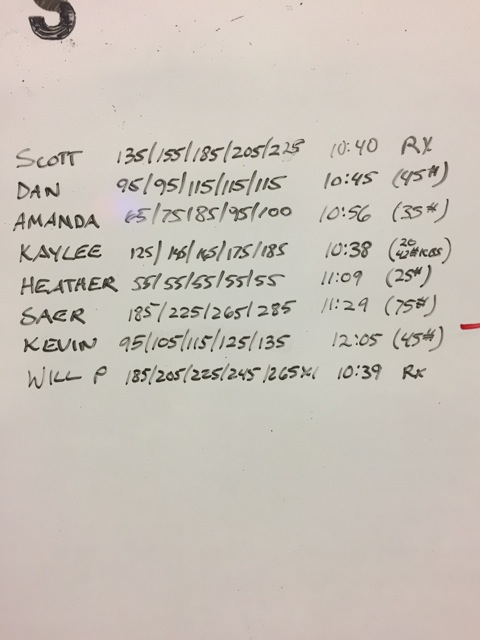 S
SCOTT 135/155/185/205/225 10:40 RX
DAN 95/95/115/115/115 10:45 (45#)
AMANDA 65/75/85/95/100 10:56 (35#)
KAYLEE 125/145/165/175/185 10:38 (20 42#KBS)
HEATHER 55/55/55/55/55 11:09 (25#)
SAER 185/225/265/285 11:29 (75#)
KEVIN 95/105/115/125/135 12:05 (45#)
WILL P 185/205/225/245/265x1 10:39 Rx